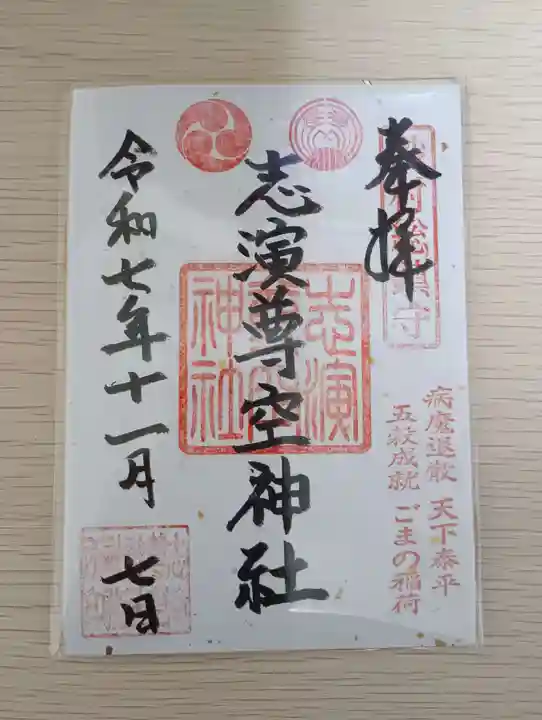 奉拝
総鎮守
病魔退散 天下泰平
五穀成就 ごまの稲荷
志演尊空神社
志演
神社
令和七年十一月
七日